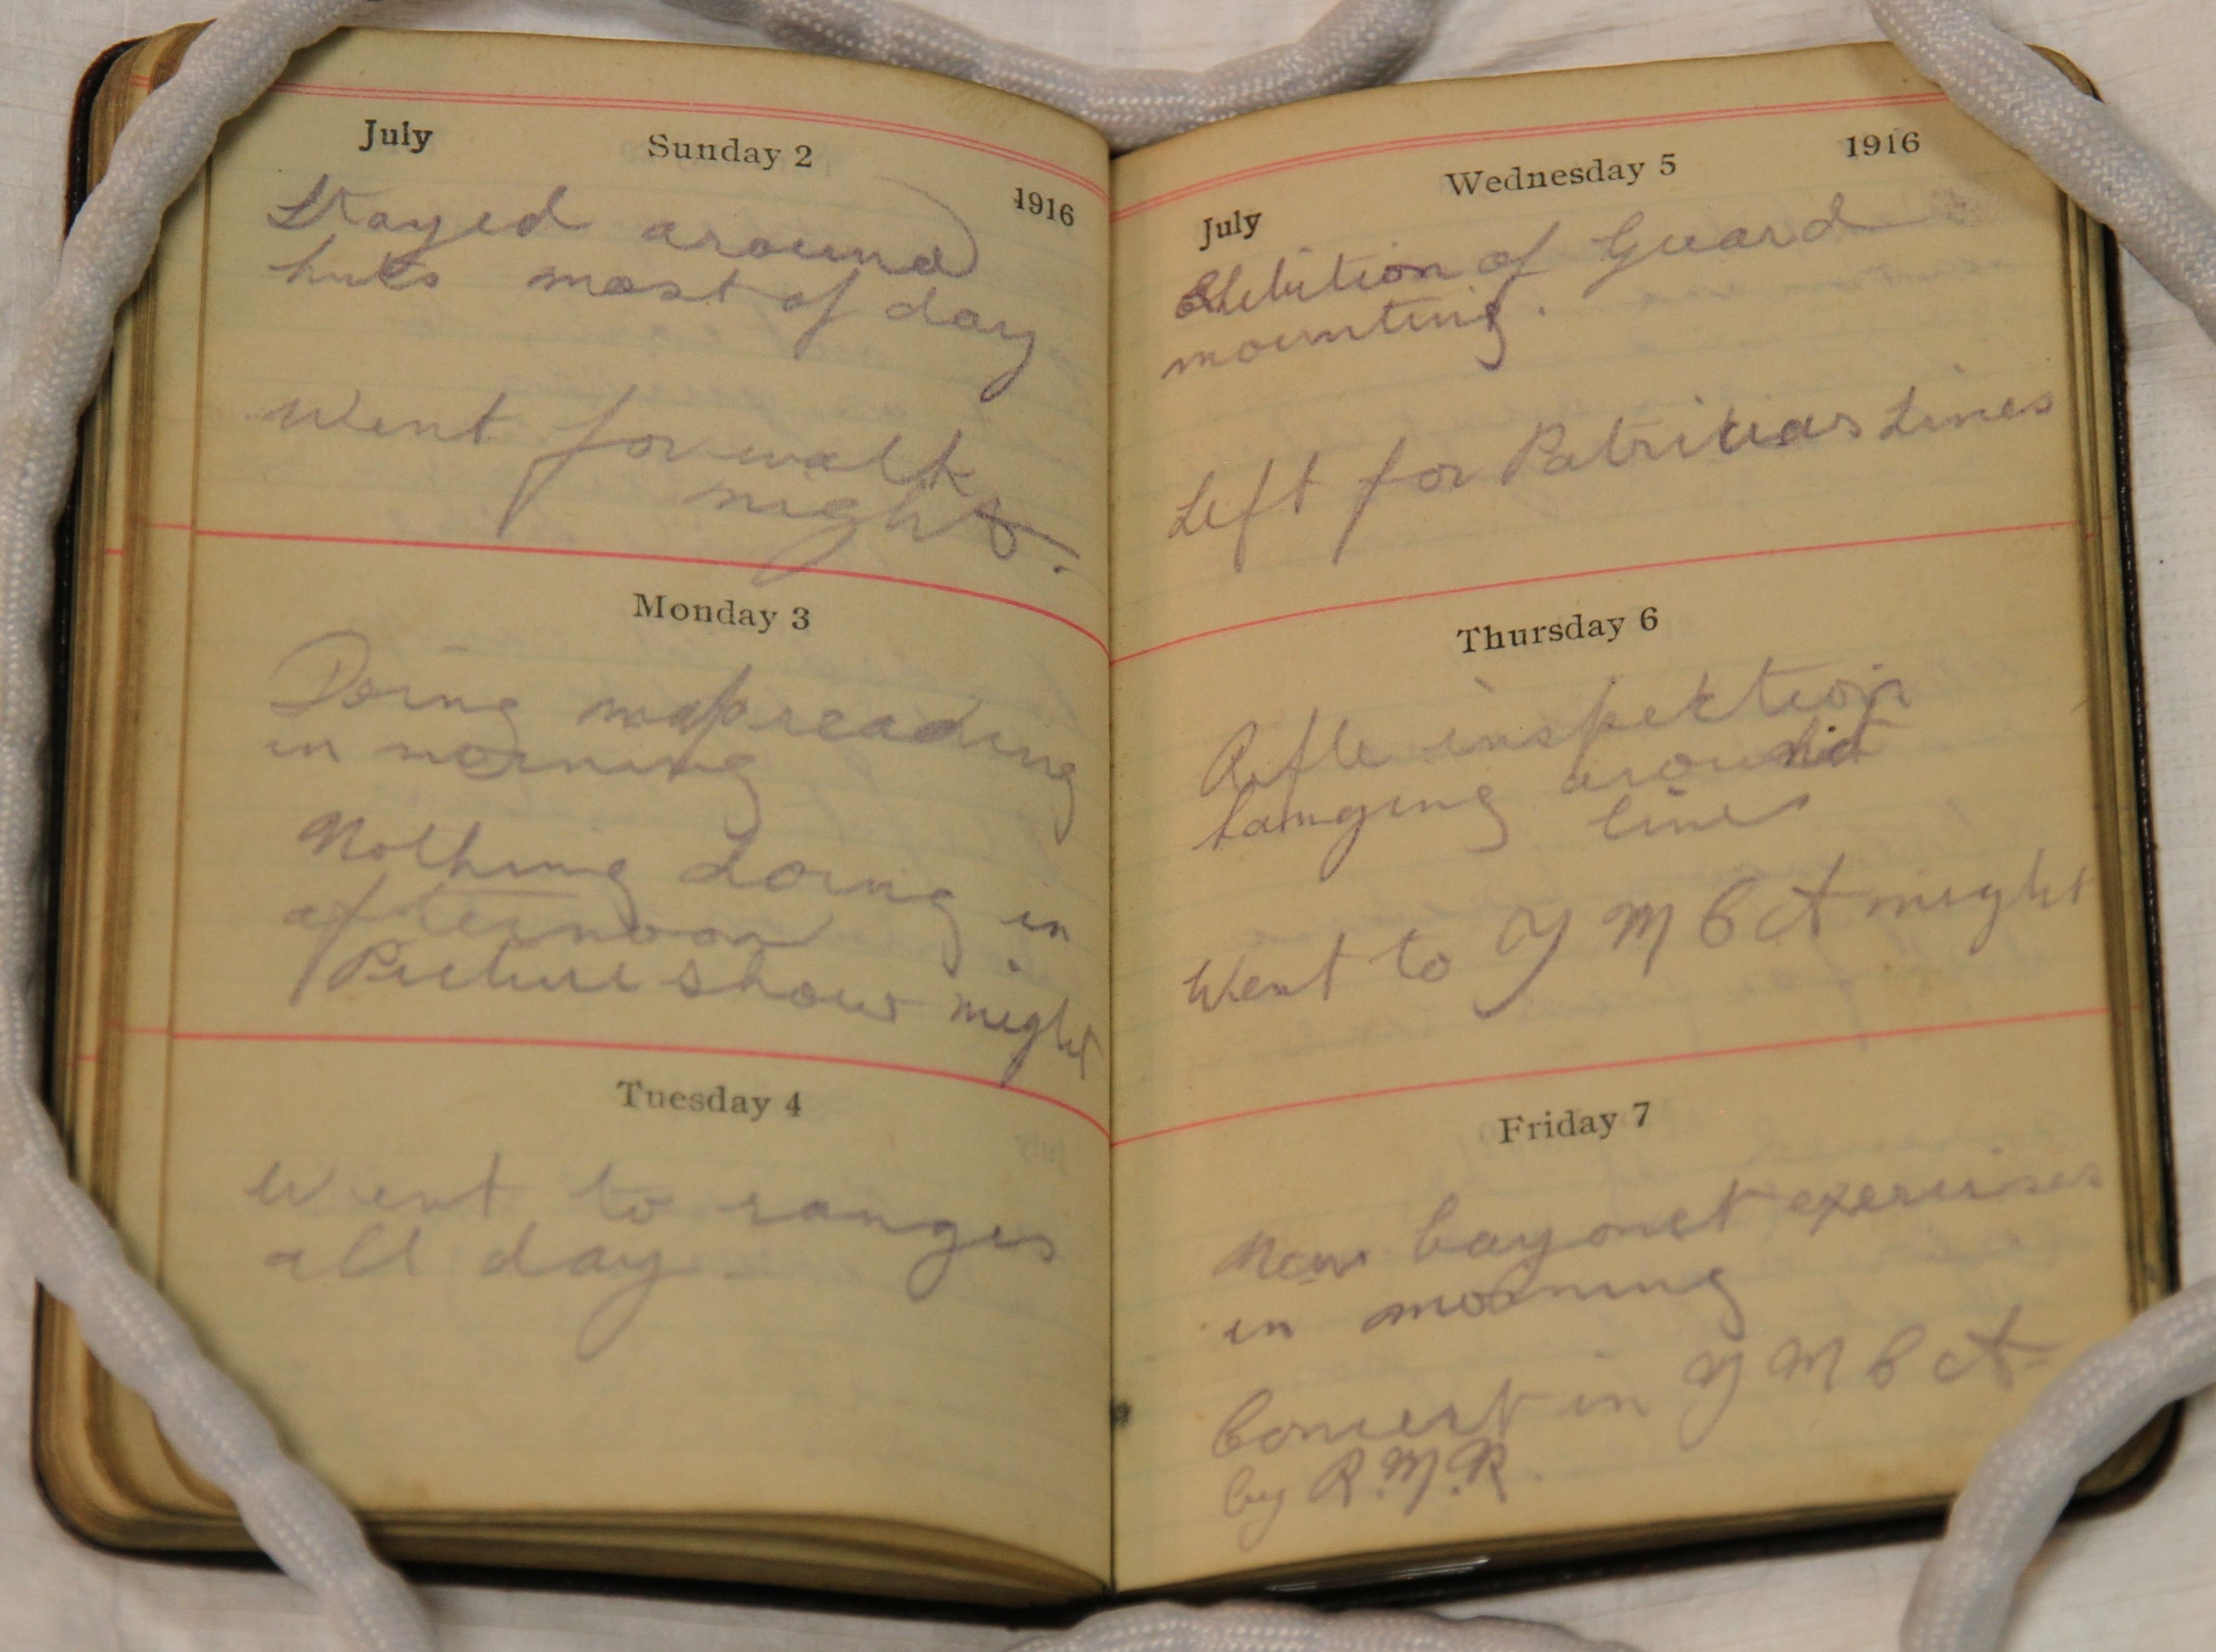 July Sunday 2 1916
Stayed around
huts most of day
Went for walk
night.
Monday 3
Doing map reading
in morning
Nothing doing in
afternoon
Picture show night
Tuesday 4
Went to ranges
all day
July Wednesday 5 1916
of Guard
mounting.
Left for Patricias Lines
Thursday 6
Rifle inspektion
hanging around
lines
Went to Y M C A night
Friday 7
New bayonet exercises
in morning
Concert in Y M C A
by R.M.R.